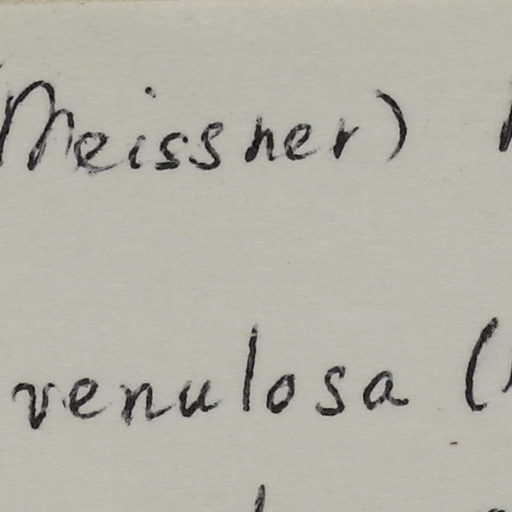 (Meissner)
venulosa (